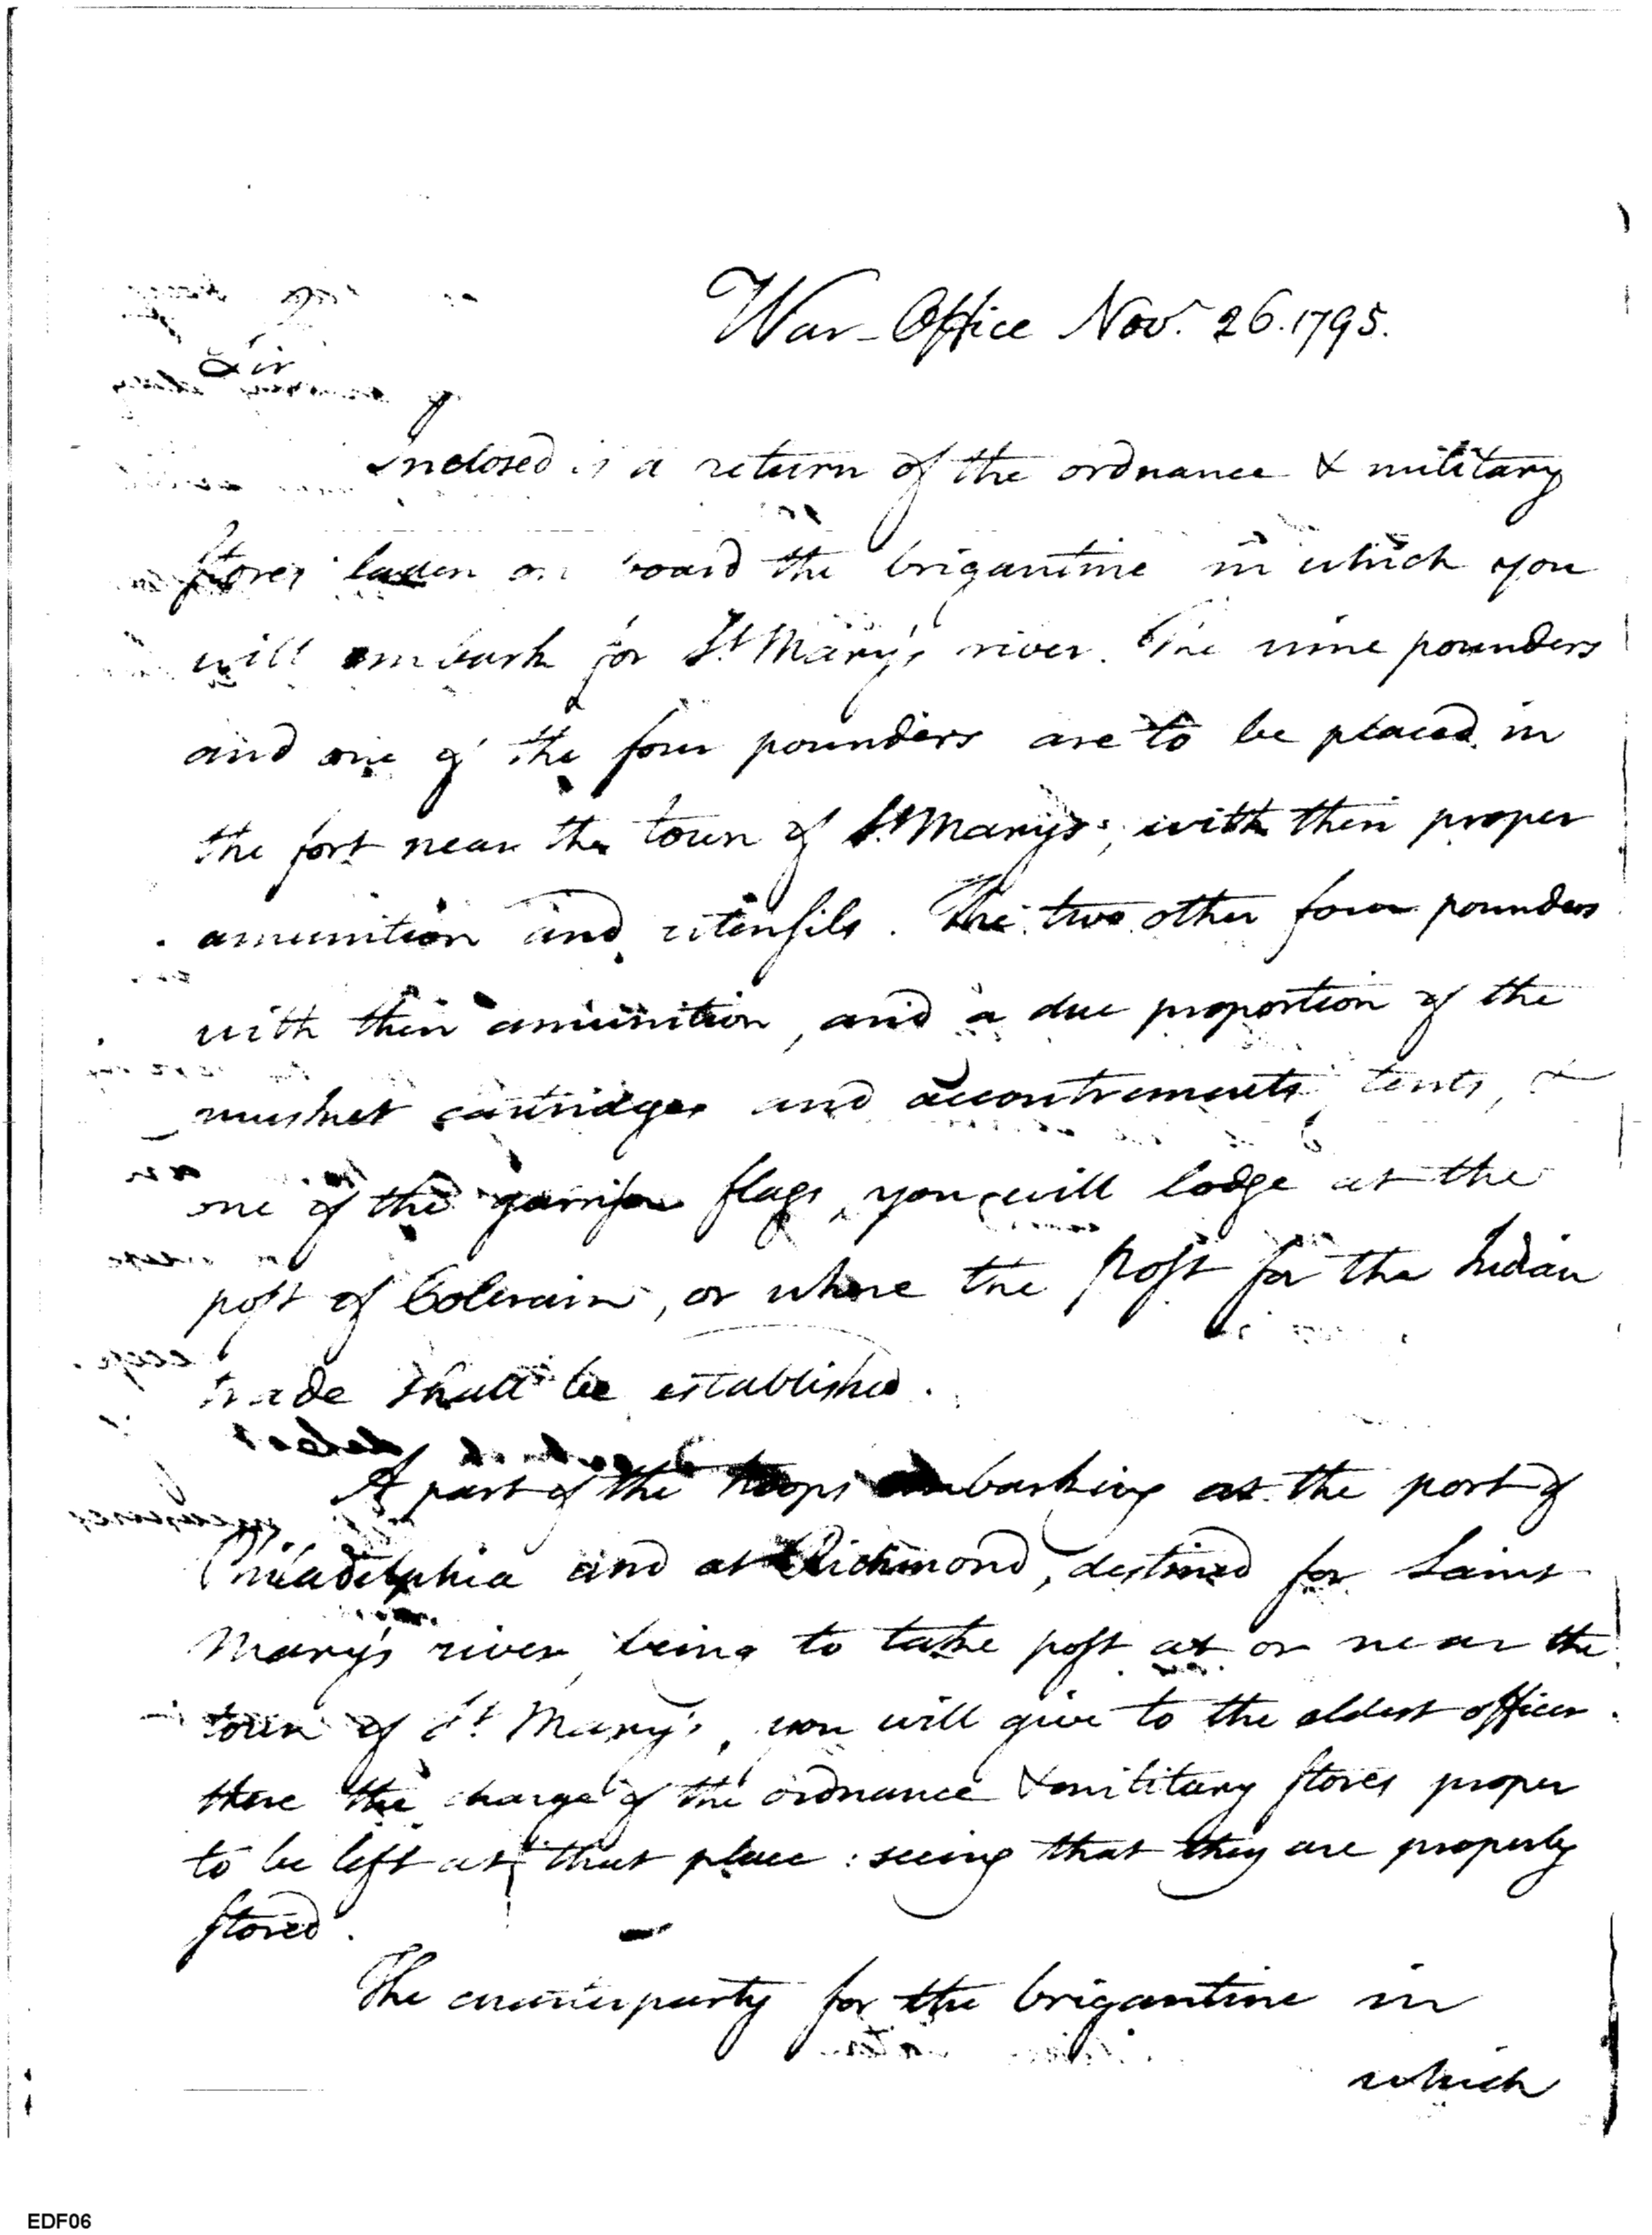 War-Office Nov. 26. 1795.
Sir
Inclosed is a return of the ordnance & military
stores laden on board the brigantine in which you
will embark for St. Mary's river. The nine pounders
and one of the four pounders are to be placed in
the fort near the town of St. Marys; with their proper
amunition and utensils. The two other four pounders
with their amunition, and a due proportion of the
musket cartridges and accoutrements, tents, &
one of the garrison flags, you will lodge at the
post of Colerain, or where the post for the Indian
trade shall be established.
A part of the troops embarking at the port of
Philadelphia and at Richmond, destined for Saint
Mary's river, being to take post at or near the
town of St. Mary's, you will give to the oldest officer
there the charge of the ordnance & military stores proper
to be left at that place: seeing that they are properly
stored.
The counterparty for the brigantine in
which
EDF06